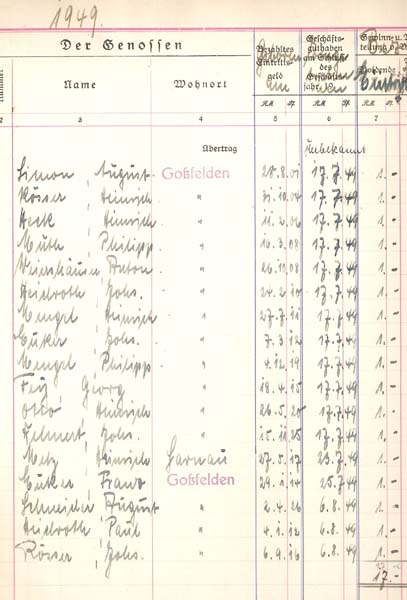 1949.
Der Genossen
Name Wohnort
Bezahltes Eintrittsgeld
Geschäftsguthaben am Schlusse des Geschäftsjahres
RM RM RM
2 3 4 5 6 7
Übertrag Unbekannt
Simon, August Goßfelden 28.8.01 17.7.49 1.-
Rösser, Heinrich " 31.10.04 17.7.49 1.-
Heck, Heinrich " 11.2.06 17.7.49 1.-
Muth, Philipp " 16.3.08 17.7.49 1.-
Anton " 26.10.08 17.7.49 1.-
Heidroth, Johs. " 24.2.10 17.7.49 1.-
Mengel, Heinrich " 27.7.11 17.7.49 1.-
Euker, Johs. " 7.3.12 17.7.49 1.-
Mengel, Philipp " 4.12.19 17.7.49 1.-
Georg " 18.4.15 17.7.49 1.-
Otto, Heinrich " 26.5.20 17.7.49 1.-
Johs. " 15.11.25 17.7.49 1.-
Metz, Heinrich Sarnau 27.5.17 23.7.49 1.-
Euker, Franz Goßfelden 29.1.14 25.7.49 1.-
Schneider, August " 2.4.26 6.8.49 1.-
Heidroth, Paul " 4.1.12 6.8.49 1.-
Rösser, Johs. " 6.9.16 6.8.49 1.-
17.-